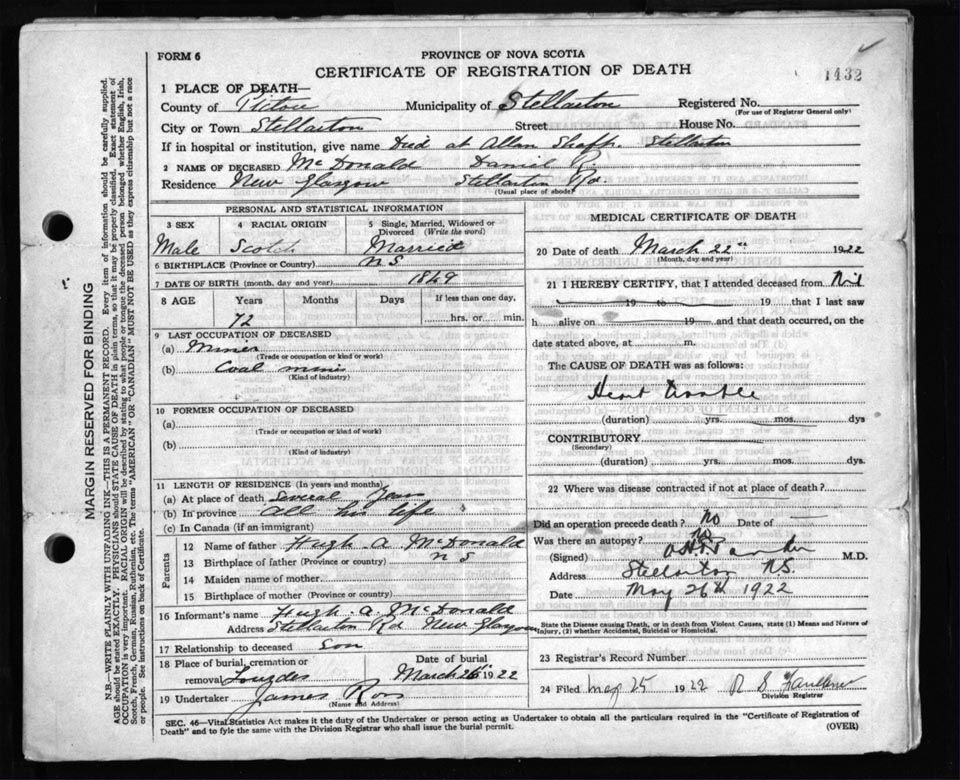 FORM 6
PROVINCE OF NOVA SCOTIA
CERTIFICATE OF REGISTRATION OF DEATH
1432
1 PLACE OF DEATH—
County of Pictou Municipality of Stellarton Registered No.
(For use of Registrar General only)
City or Town Stellarton Street House No.
If in hospital or institution, give name Died at Allan Shaft. Stellarton
2 NAME OF DECEASED McDonald Daniel R.
Residence New Glasgow Stellarton Rd.
(Usual place of abode)
PERSONAL AND STATISTICAL INFORMATION
3 SEX 4 RACIAL ORIGIN 5 Single, Married, Widowed or Divorced (Write the word)
Male Scotch Married
6 BIRTHPLACE (Province or Country) N S
7 DATE OF BIRTH (month, day and year) 1849
8 AGE Years Months Days If less than one day,
72 hrs. or min.
9 LAST OCCUPATION OF DECEASED
(a) Miner
(Trade or occupation or kind or work)
(b) Coal mines
(Kind of industry)
10 FORMER OCCUPATION OF DECEASED
(a)
(Trade or occupation or kind or work)
(b)
(Kind of industry)
11 LENGTH OF RESIDENCE (In years and months)
(a) At place of death Several Years
(b) In province all his life
(c) In Canada (if an immigrant)
Parents
12 Name of father Hugh A. McDonald
13 Birthplace of father (Province or country) N S
14 Maiden name of mother
15 Birthplace of mother (Province or Country)
16 Informant's name Hugh. A. McDonald
Address Stellarton Rd New Glasgow
17 Relationship to deceased Son
18 Place of burial, cremation or removal Lourdes Date of burial March 25 1922
19 Undertaker James Ross
(Name and Address)
MEDICAL CERTIFICATE OF DEATH
20 Date of death March 22nd 1922
(Month, day and year)
21 I HEREBY CERTIFY, that I attended deceased from Nil
19 to 19 that I last saw
h alive on 19 and that death occurred, on the
date stated above, at m.
The CAUSE OF DEATH was as follows:
Heart trouble
(duration) yrs. mos. dys
CONTRIBUTORY
(Secondary)
(duration) yrs. mos. dys.
22 Where was disease contracted if not at place of death?
Did an operation precede death? No Date of
Was there an autopsy? No
(Signed) M.D.
Address Stellarton N.S.
Date May 26th 1922
State the Disease causing Death, or in death from Violent Causes, state (1) Means and Nature of Injury, (2) whether Accidental, Suicidal or Homicidal.
23 Registrar's Record Number
24 Filed 25 1922 R S
Division Registrar
SEC. 46—Vital Statistics Act makes it the duty of the Undertaker or person acting as Undertaker to obtain all the particulars required in the "Certificate of Registration of
Death" and to fyle the same with the Division Registrar who shall issue the burial permit.
(OVER)
MARGIN RESERVED FOR BINDING
N.B.—WRITE PLAINLY WITH UNFADING INK—THIS IS A PERMANENT RECORD. Every item of information should be carefully supplied.
AGE should be stated EXACTLY. PHYSICIANS should STATE CAUSE OF DEATH in plain terms, so that it may be properly classified. Exact statement of
OCCUPATION is very important. RACIAL ORIGIN will be described by stating to what people or tongue the deceased person belonged whether English, Irish,
Scotch, French, German, Russian, Ruthenian, etc. The terms "AMERICAN" OR "CANADIAN" MUST NOT BE USED as they express citizenship but not a race
or people. See instructions on back of Certificate.